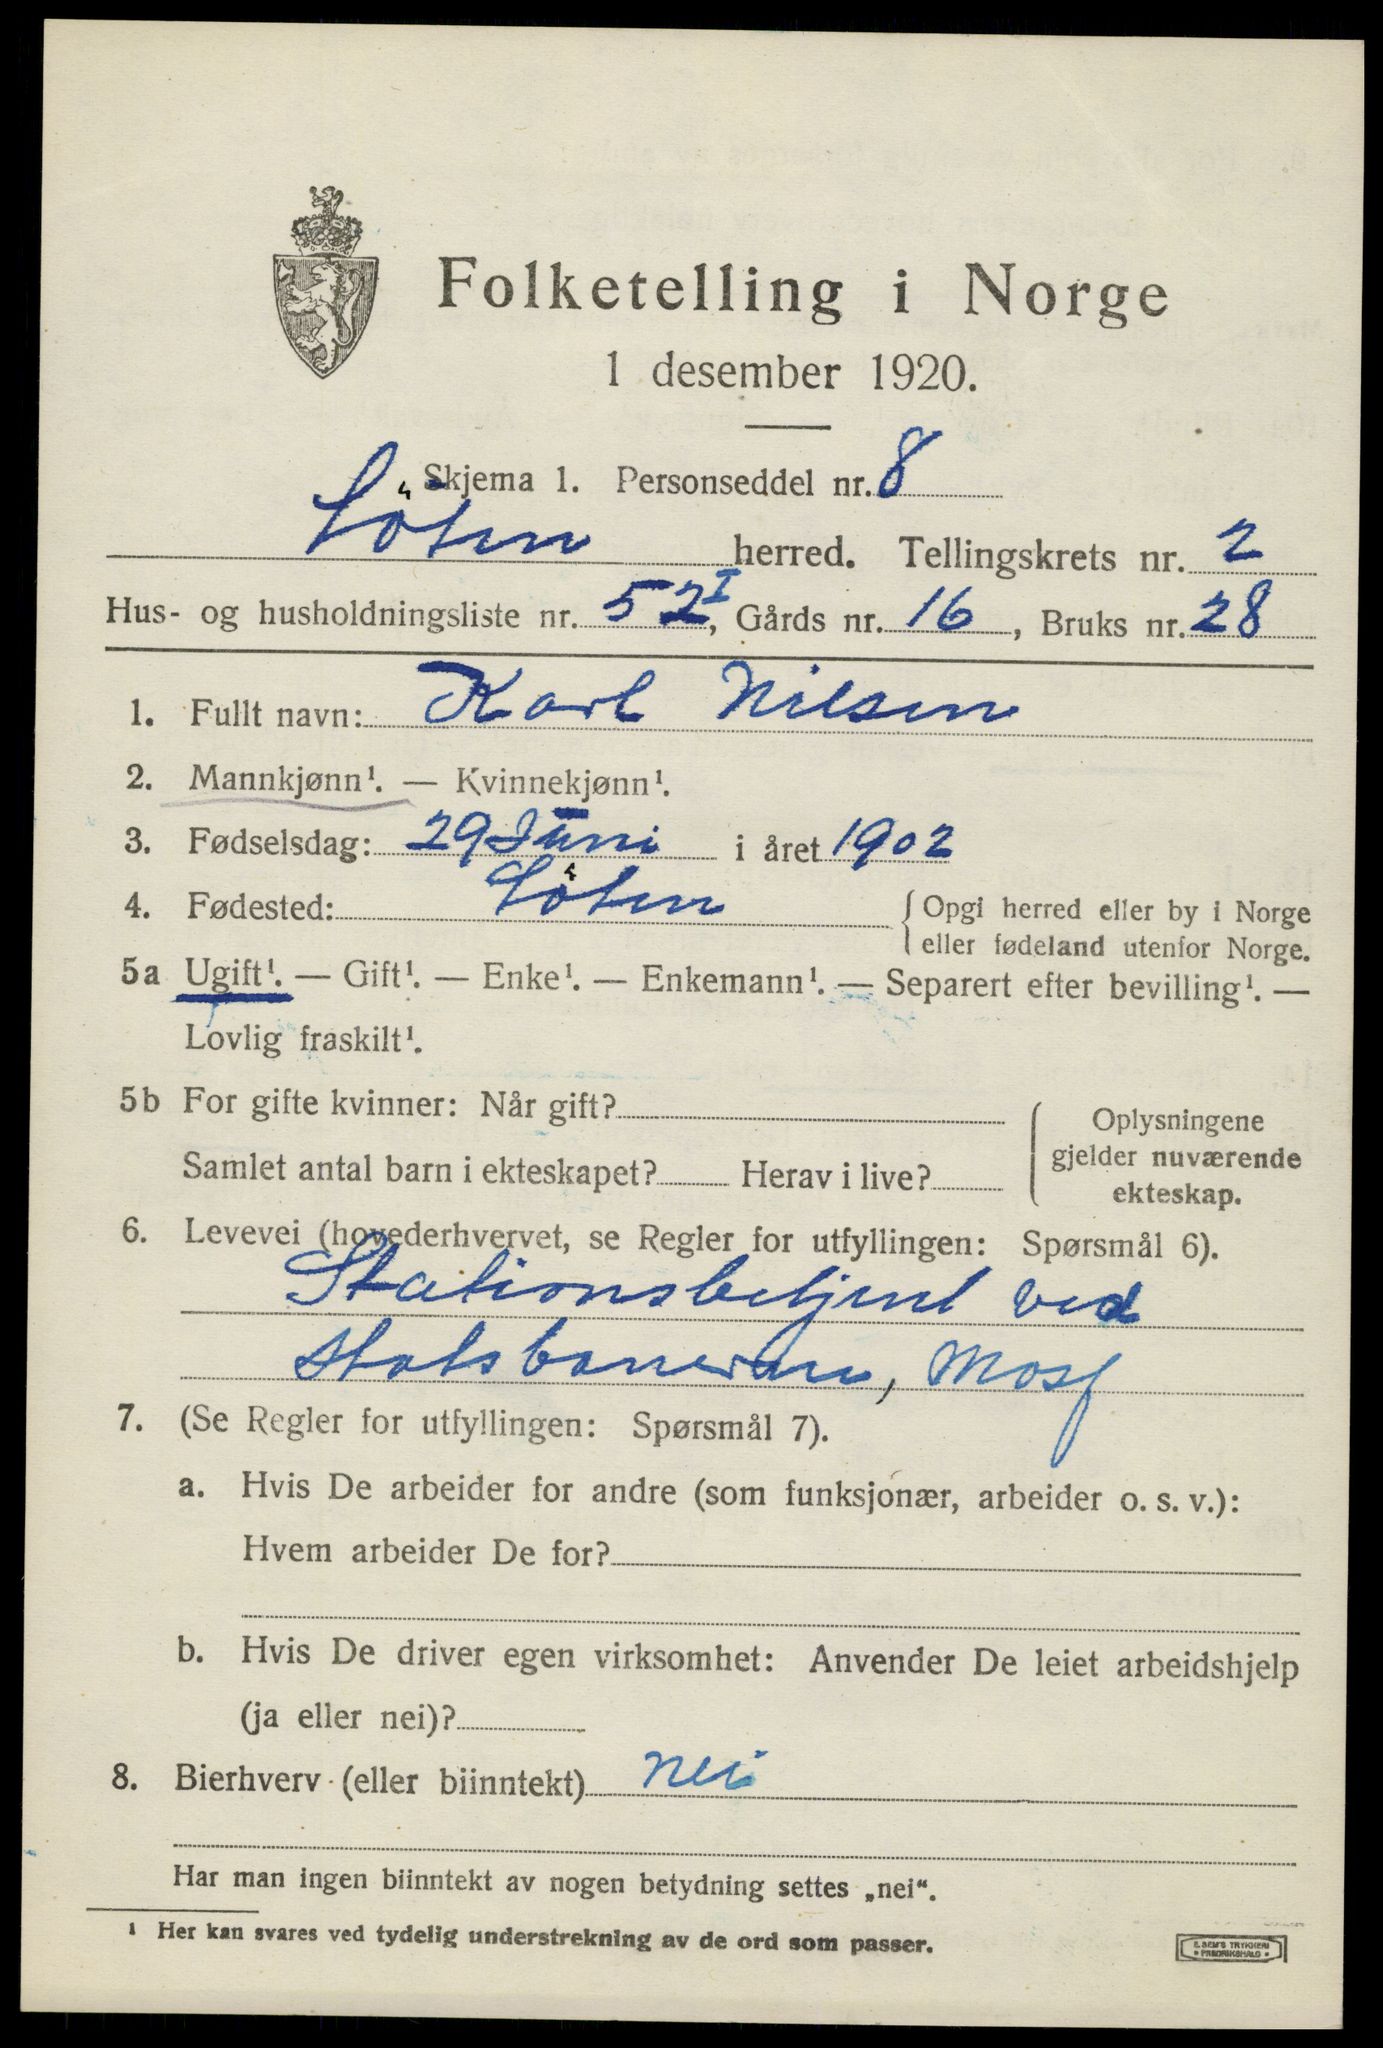 Folketelling i Norge
1 desember 1920.
Skjema 1. Personseddel nr. 8
Löten herred. Tellingskrets nr. 2
Hus- og husholdningsliste nr. 52 I, Gårds nr. 16, Bruks nr. 28
1. Fullt navn: Karl Nilsen
2. Mannkjønn¹. — Kvinnekjønn¹.
3. Fødselsdag: 29 Juni i året 1902
4. Fødested: Löten { Opgi herred eller by i Norge
eller fødeland utenfor Norge.
5a Ugift¹. — Gift¹. — Enke¹. — Enkemann¹. — Separert efter bevilling¹. —
Lovlig fraskilt¹.
5b For gifte kvinner: Når gift?
Samlet antal barn i ekteskapet? Herav i live?
Oplysningene
gjelder nuværende
ekteskap.
6. Levevei (hovederhvervet, se Regler for utfyllingen: Spørsmål 6).
Stationsbetjent ved
statsbanerne,
7. (Se Regler for utfyllingen: Spørsmål 7).
a. Hvis De arbeider for andre (som funksjonær, arbeider o. s. v.):
Hvem arbeider De for?
b. Hvis De driver egen virksomhet: Anvender De leiet arbeidshjelp
(ja eller nei)?
8. Bierhverv (eller biinntekt) nei
Har man ingen biinntekt av nogen betydning settes „nei“.
¹ Her kan svares ved tydelig understrekning av de ord som passer.
E. SEM'S TRYKKERI
• FREDRIKSHALD •